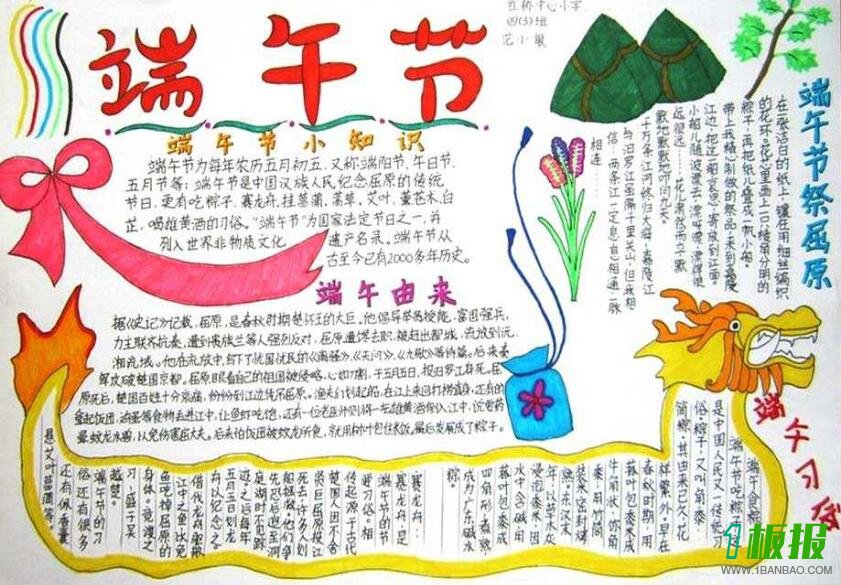 红桥中心小学
四(3)班
范小敏
端午节
端午节小知识
端午节为每年农历五月初五,又称端阳节、午日节、
五月节等;端午节是中国汉族人民纪念屈原的传统
节日,更有吃粽子,赛龙舟,挂菖蒲,蒿草,艾叶,薰苍术,白
芷,喝雄黄酒的习俗。"端午节"为国家法定节日之一,并
列入世界非物质文化 遗产名录。端午节从
古至今已有2000多年历史。
端午由来
据《史记》记载,屈原,是春秋时期楚怀王的大臣。他倡导举贤授能,富国强兵,
力主联齐抗秦,遭到贵族
强烈反对,屈原遭馋去职,被赶出都城,流放到沅、
湘流域。他在流放中,
了忧国忧民的《离骚》、《天问》、《九歌》等诗篇。后来秦
军攻破楚国京都。屈原眼看自己的祖国被侵略,心如刀割,于五月五日,
汨罗江身死。屈
原死后,楚国百姓十分哀痛,纷纷到江边凭吊屈原。渔夫们划起船,在江上来回打捞
端午节祭屈原
在一张洁白的纸上,镶在用细丝编织
的花环。花心里画上一
棱角分明的
粽子,再把纸小
叠成一帆小船。
带上我精心制做的祭品,来到嘉陵
江边,把这相
思寄放到江面。
小船儿随波漂去
远很远
花儿肃然而立,
默
默地默默地叩问九天。
千万条江河终归大海,嘉陵江
与汨罗江虽隔千里关山,但我相
信,两条江一定息息相通,一脉
相连
端午习俗
端午食粽
端午节吃粽子,
是中国人民又一传统习
俗。粽子,又叫"角黍"、
"筒粽"。其由来已久,花
样繁多。早在
春秋时期,用
菰叶包黍米成
牛角状,
"角
黍";用竹筒
装米密封烤
熟,
东汉末
年,以草木灰
水浸泡黍米,因
水中含碱,用
菰叶包黍成
四角形,煮熟,
成为广东碱水
粽。
赛龙舟:
赛龙舟,是
端午节的
习俗。相
传起源于古代
楚国人因不舍
得
臣屈原投江
死去,许多人划
船
先恐后追至洞
庭湖时不见踪
迹,之后每年
五月五日划龙
舟以纪念之。
借划龙舟驱散
江中之鱼,以免
鱼吃掉屈原的
身体。竞渡之
习,盛于吴
越楚。
端午节的习
俗还有很多
还有佩香囊、
悬艾叶菖蒲等。
1板报
WWW.1BANBAO.COM